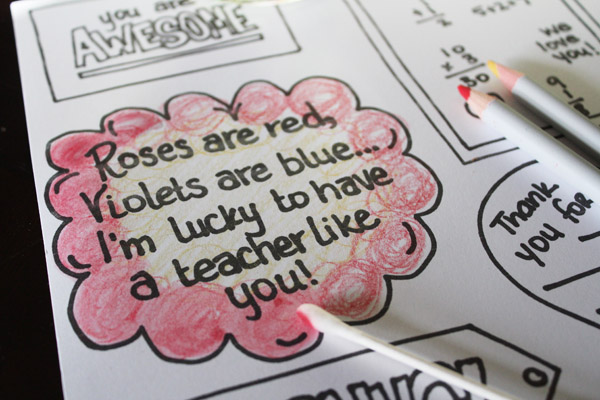 you are
AWESOME
Roses are red,
Violets are blue...
I'm lucky to have
a teacher like
you!
5+2=7
10
x 8
80
we
love
you!
Thank
you for